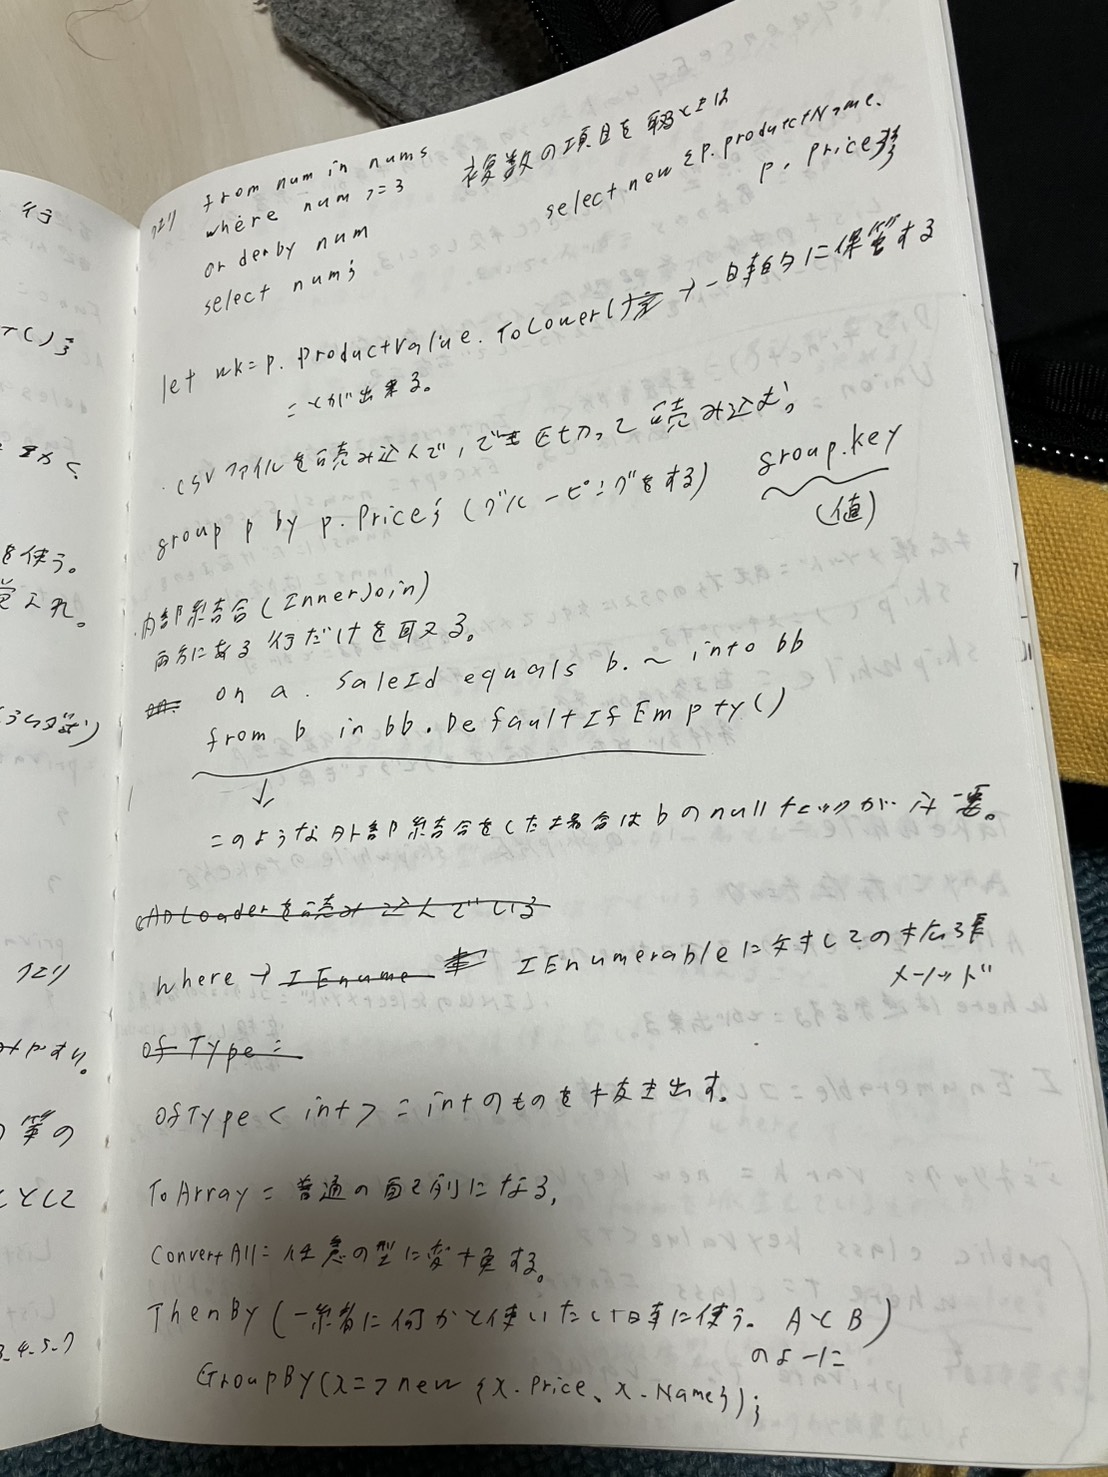 例 from num in nums
where num >= 3
orderby num
select num;
複数の項目を取るときは
select new {p.productName.
p. price};
let wk = p. ProductValue. ToLower() → 一時的に保管する
ことが出来る。
・CSVファイルを読み込んで、 区切って読み込む。
group p by p. Price; (グルーピングをする)
group.key
(値)
・内部結合 (InnerJoin)
両方にある行だけを取る。
on a. SaleId equals b. ~ into bb
from b in bb. DefaultIfEmpty()
↓
このような外部結合をした場合はbのnullチェックが必要。
CADLoaderを読み込んでいる
where → IEnume IEnumerableに対しての拡張
メソッド
Of Type =
OfType < int > = intのものを抜き出す。
ToArray = 普通の配列になる。
ConvertAll = 任意の型に変換する。
ThenBy (一緒に何かと使いたい時に使う。 AとB)
のように
GroupBy(x => new {x. Price、x. Name});
行
を使う。
等の
として
3.4.5.7